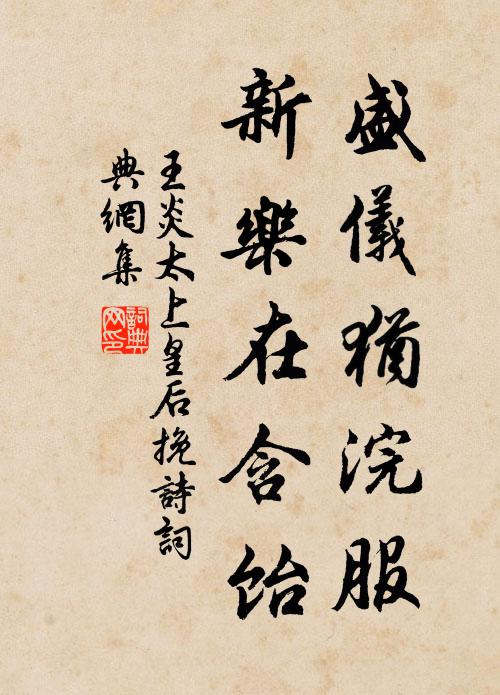 盛儀猶浣服
新樂在含飴
王炎太上皇后挽詩詞
典網集
詞典
网印